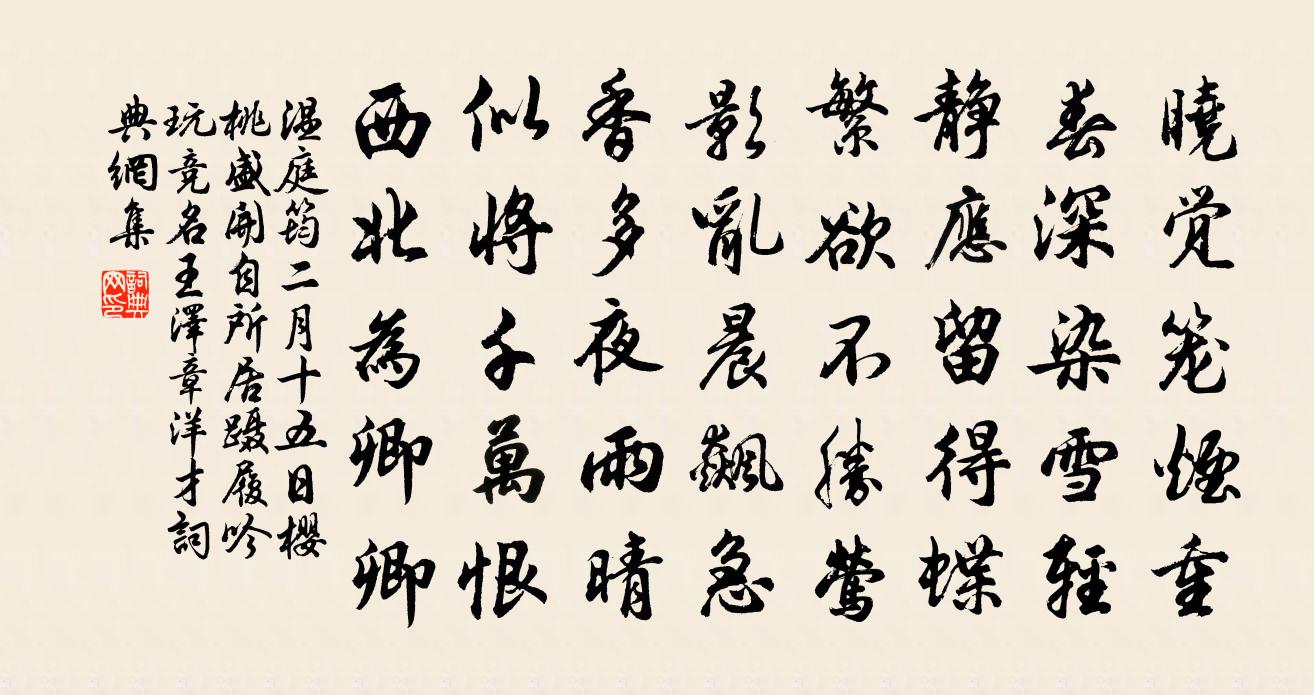 曉覚笼煙重
春深染雪輕
静應留得蝶
繁欲不勝鶯
影亂晨飆急
香多夜雨晴
似將千萬恨
西北為卿卿
温庭筠二月十五日櫻
桃盛開自所居躡履吟
玩竞名王澤章洋才詞
典網集
詞典网印